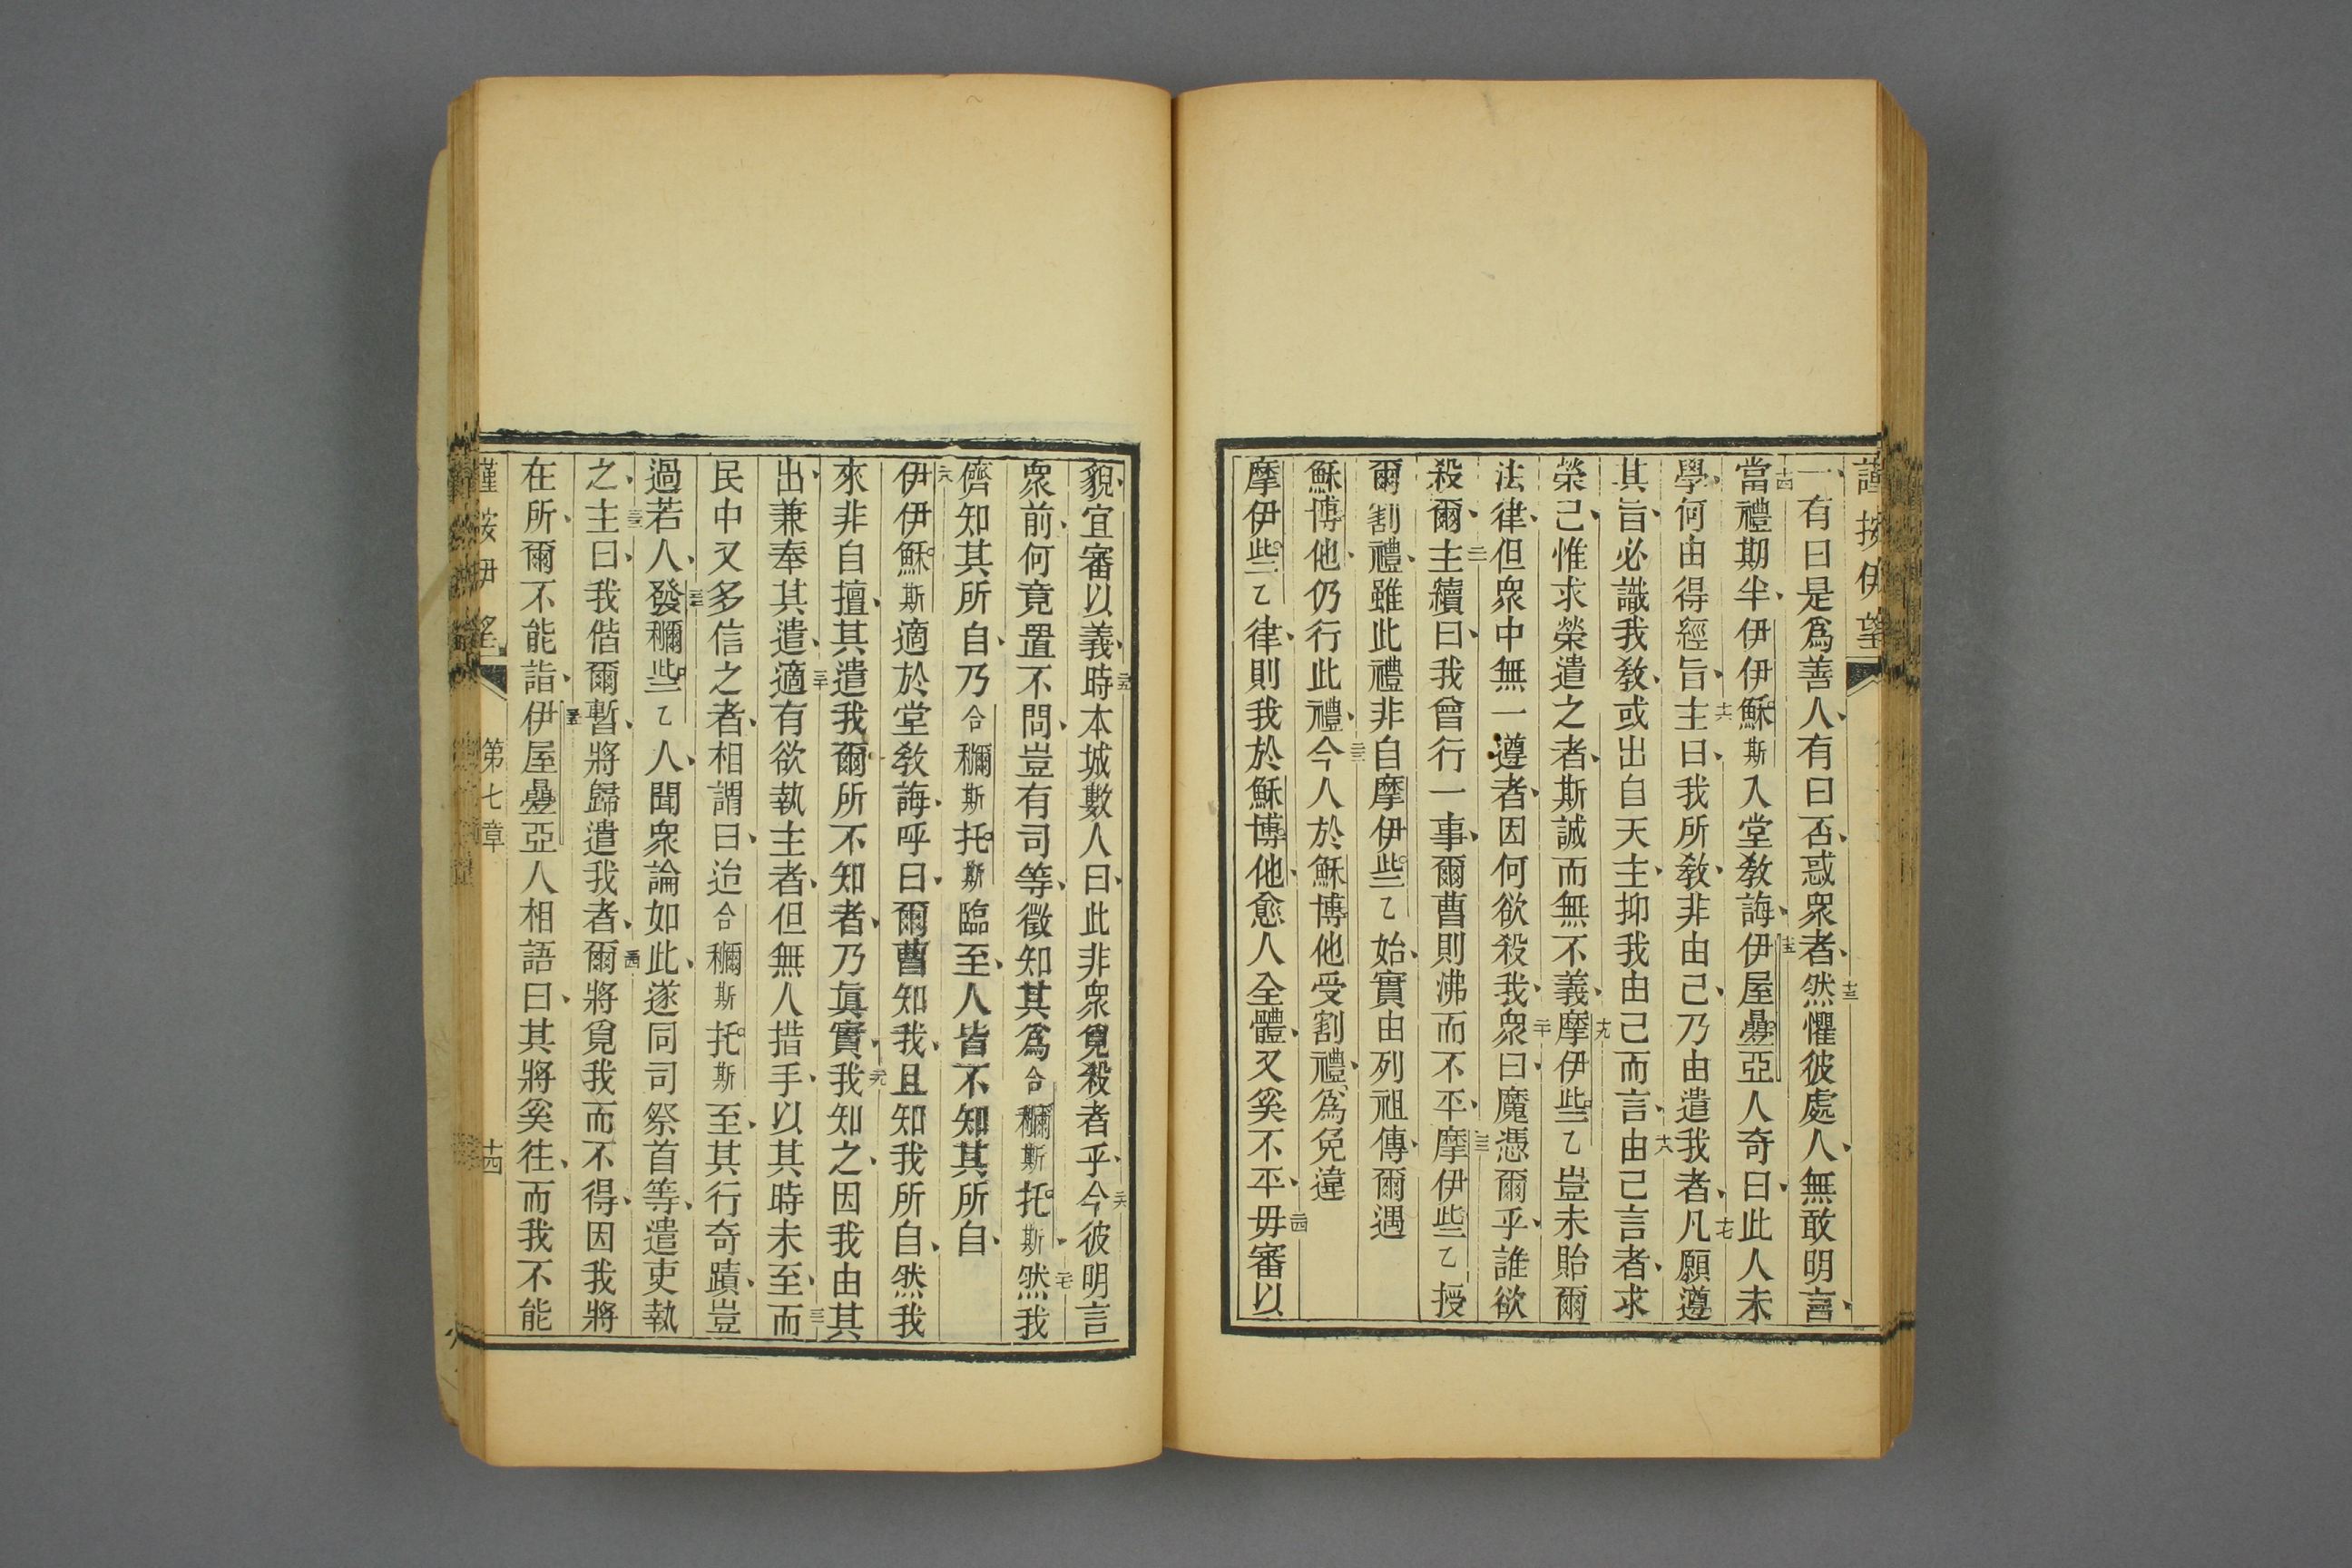 謹按伊望
一、有曰是爲善人、有曰否、惑衆者、十三然懼彼處人、無敢明言、
十四當禮期半、伊伊穌斯入堂敎誨、十五伊屋疊亞人奇曰、此人未
學、何由得經旨、十六主曰、我所敎、非由己、乃由遣我者、十七凡願遵
其旨、必識我敎、或出自天主、抑我由己而言、十八由己言者、求
榮己、惟求榮遣之者、斯誠而無不義、十九摩伊些乙豈未貽爾
法律、但衆中無一遵者、因何欲殺我、二十衆曰、魔憑爾乎、誰欲
殺爾、二一主續曰、我曾行一事、爾曹則沸而不平、二二摩伊些乙授
爾割禮、雖此禮非自摩伊些乙始、實由列祖傳、爾遇
穌博他、仍行此禮、二三今人於穌博他受割禮、爲免違
摩伊些乙律、則我於穌博他、愈人全體、又奚不平、二四毋審以
貌、宜審以義、二五時本城數人曰、此非衆覓殺者乎、二六今彼明言
衆前、何竟置不問、豈有司等、徵知其爲合穪斯托斯、二七然我
儕知其所自、乃合穪斯托斯臨至、人皆不知其所自、
二八伊伊穌斯適於堂敎誨、呼曰、爾曹知我、且知我所自、然我
來非自擅、其遣我爾所不知者、乃眞實、二九我知之、因我由其
出、兼奉其遣、三十適有欲執主者、但無人措手、以其時未至、三一而
民中又多信之者、相謂曰、迨合穪斯托斯至、其行奇蹟、豈
過若人、三二發穪些乙人、聞衆論如此、遂同司祭首等、遣吏執
之、三三主曰、我偕爾暫、將歸遣我者、三四爾將覓我而不得、因我將
在所、爾不能詣、三五伊屋疊亞人相語曰、其將奚往、而我不能
謹按伊望 第七章 十四